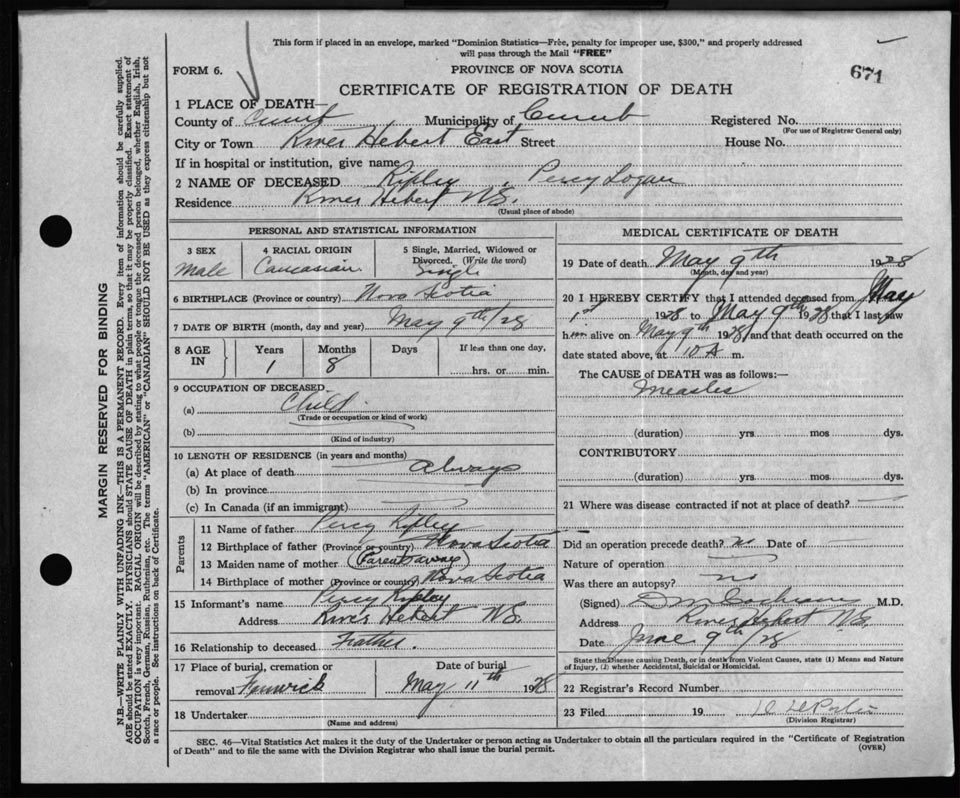 This form if placed in an envelope, marked "Dominion Statistics—Free, penalty for improper use, $300," and properly addressed
will pass through the Mail "FREE"
FORM 6.
PROVINCE OF NOVA SCOTIA
671
CERTIFICATE OF REGISTRATION OF DEATH
1 PLACE OF DEATH—
County of Cumb Municipality of Cumb Registered No.
(For use of Registrar General only)
City or Town River Hebert East Street House No.
If in hospital or institution, give name
2 NAME OF DECEASED Ripley, Percy Logan
Residence River Hebert N.S.
(Usual place of abode)
PERSONAL AND STATISTICAL INFORMATION
3 SEX Male
4 RACIAL ORIGIN Caucasian
5 Single, Married, Widowed or
Divorced. (Write the word)
Single
6 BIRTHPLACE (Province or country) Nova Scotia
7 DATE OF BIRTH (month, day and year) May 9th/28
8 AGE IN
Years Months Days If less than one day,
1 8 hrs. or min.
9 OCCUPATION OF DECEASED
(a) Child
(Trade or occupation or kind of work)
(b)
(Kind of industry)
10 LENGTH OF RESIDENCE (in years and months)
(a) At place of death always
(b) In province
(c) In Canada (if an immigrant)
Parents
11 Name of father Percy Ripley
12 Birthplace of father (Province or country) Nova Scotia
13 Maiden name of mother
14 Birthplace of mother (Province or country) Nova Scotia
15 Informant's name Percy Ripley
Address River Hebert N.S.
16 Relationship to deceased Father
17 Place of burial, cremation or
removal Fenwick
Date of burial
May 11th 1928
18 Undertaker
(Name and address)
MEDICAL CERTIFICATE OF DEATH
19 Date of death May 9th 1928
(Month, day and year)
20 I HEREBY CERTIFY that I attended deceased from May
1st 1928 to May 9th 1928 that I last saw
him alive on May 9th 1928 and that death occurred on the
date stated above, at 10 A m.
The CAUSE of DEATH was as follows:—
Measles
(duration) yrs. mos. dys.
CONTRIBUTORY
(duration) yrs. mos. dys.
21 Where was disease contracted if not at place of death?
Did an operation precede death? no Date of
Nature of operation
Was there an autopsy? no
(Signed) D M Cochrane M.D.
Address River Hebert N.S.
Date June 9th/28
State the Disease causing Death, or in death from Violent Causes, state (1) Means and Nature
of Injury, (2) whether Accidental, Suicidal or Homicidal.
22 Registrar's Record Number
23 Filed 19
(Division Registrar)
SEC. 46—Vital Statistics Act makes it the duty of the Undertaker or person acting as Undertaker to obtain all the particulars required in the "Certificate of Registration
of Death" and to file the same with the Division Registrar who shall issue the burial permit.
(OVER)
MARGIN RESERVED FOR BINDING
N.B.—WRITE PLAINLY WITH UNFADING INK—THIS IS A PERMANENT RECORD. Every item of information should be carefully supplied.
AGE should be stated EXACTLY. PHYSICIANS should STATE CAUSE OF DEATH in plain terms, so that it may be properly classified. Exact statement of
OCCUPATION is very important. RACIAL ORIGIN will be described by stating to what people or tongue the deceased person belonged, whether English, Irish,
Scotch, French, German, Russian, Ruthenian, etc. The terms "AMERICAN" or "CANADIAN" SHOULD NOT BE USED as they express citizenship but not
a race or people. See instructions on back of Certificate.